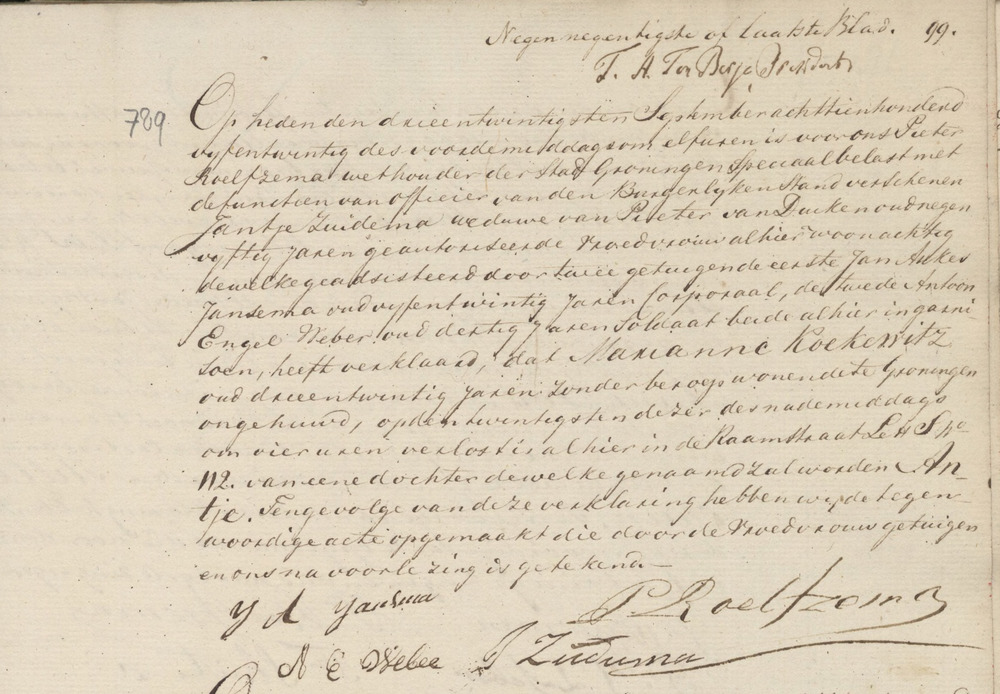 Negen negentigste of laatste Blad. 99.
T. H. Ter Berge President
789
Op heden den drieentwintigsten September achttienhonderd
vyfentwintig des voordemiddags om elf uren is voor ons Pieter
Roelfzema wethouder der Stad Groningen Speciaal belast met
de functien van officier van den Burgerlyken Stand verschenen
Jantje Zuidema weduwe van Pieter van Duiken oud negen
vyftig jaren geautoriseerde vroedvrouw alhier woonachtig
dewelke geadsisteerd door twee getuigen de eerste Jan Aukes
Jansema oud vyfentwintig jaren Corporaal, de tweede Antoon
Engel Weber oud dertig jaren Soldaat beide alhier in garni
soen, heeft verklaard, dat Marianne Koekewitz
oud drieentwintig jaren zonder beroep wonende te Groningen
ongehuwd, op den twintigsten dezer des nademiddags
om vier uren verlost is alhier in de Raamstraat Lett S no
112. van eene dochter dewelke genaamd zal worden An
tje. Tengevolge van deze verklaring hebben wy de tegen
woordige acte opgemaakt die door de vroedvrouw getuigen
en ons na voorlezing is getekend
Y A Jansma
P Roelfzema
A E Weber J Zuiduma